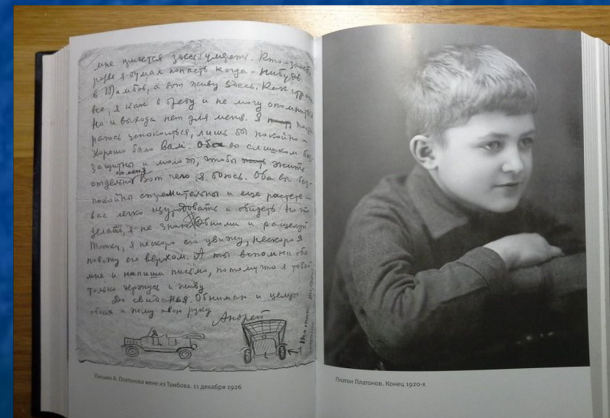 мне придется здесь умереть. Кто знает,
разве я думал попасть когда-нибудь
в Тамбов, а вот живу здесь. Как
все, я как в бреду и не могу опомниться
Но и выхода нет для меня. Я
успокоиться, лишь бы покойно и
хорошо было вам. Оба вы слишком без
защитны и молоды, чтобы жить
отдельно от меня
Вот чего я боюсь. Оба вы бес-
покойны стремительны и еще растете -
вас легко и обидеть. Но что
делать, я не знаю. Обними и расцелуй
Тотку, я нескоро его увижу, нескоро я
его верхом. А ты вспомни обо
мне и напиши письмо, потому что я тобой
только держусь и живу
До свидания. Обнимаю и целую
и жму твою руку
Андрей
Письмо А. Платонова жене из Тамбова. 11 декабря 1926
Платон Платонов. Конец 1920-х